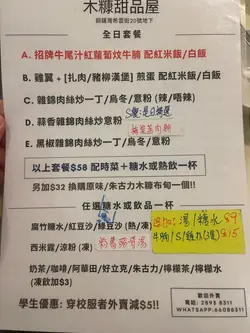 木糠甜品屋
銅鑼灣希雲街20號地下
全日套餐
A. 招牌牛尾汁紅蘿蔔炆牛腩 配紅米飯/白飯
B. 雞翼 + [扎肉/豬柳漢堡] 煎蛋 配紅米飯/白飯
C. 雜錦肉絲炒一丁/烏冬/意粉 (辣/唔辣)
D. 蒜香雜錦肉絲炒一丁/烏冬/意粉
E. 黑椒雜錦肉絲炒一丁/烏冬/意粉
以上套餐$58 配時菜+糖水或熱飲一杯
另加$32 換購原味/朱古力木糠布甸一個!!
任選糖水或飲品一杯
腐竹糖水/紅豆沙/綠豆沙 (熱/凍)
西米露/涼粉 (凍)
湯/糖水 $9
$15
奶茶/咖啡/阿華田/好立克/朱古力/檸檬茶/檸檬水
(凍飲加$3)
學生優惠: 穿校服者外賣減$5!!
歡迎外賣
電話: 2895 8311
WHATSAPP:66088311